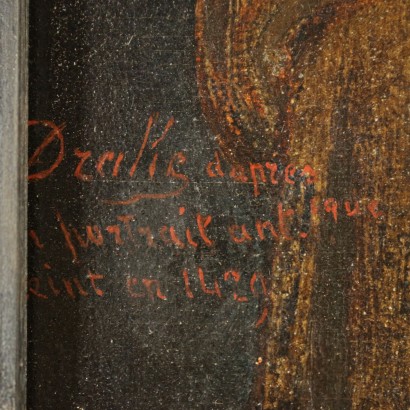 Dralle d'apres
portrait ant. ique
eint en 1429